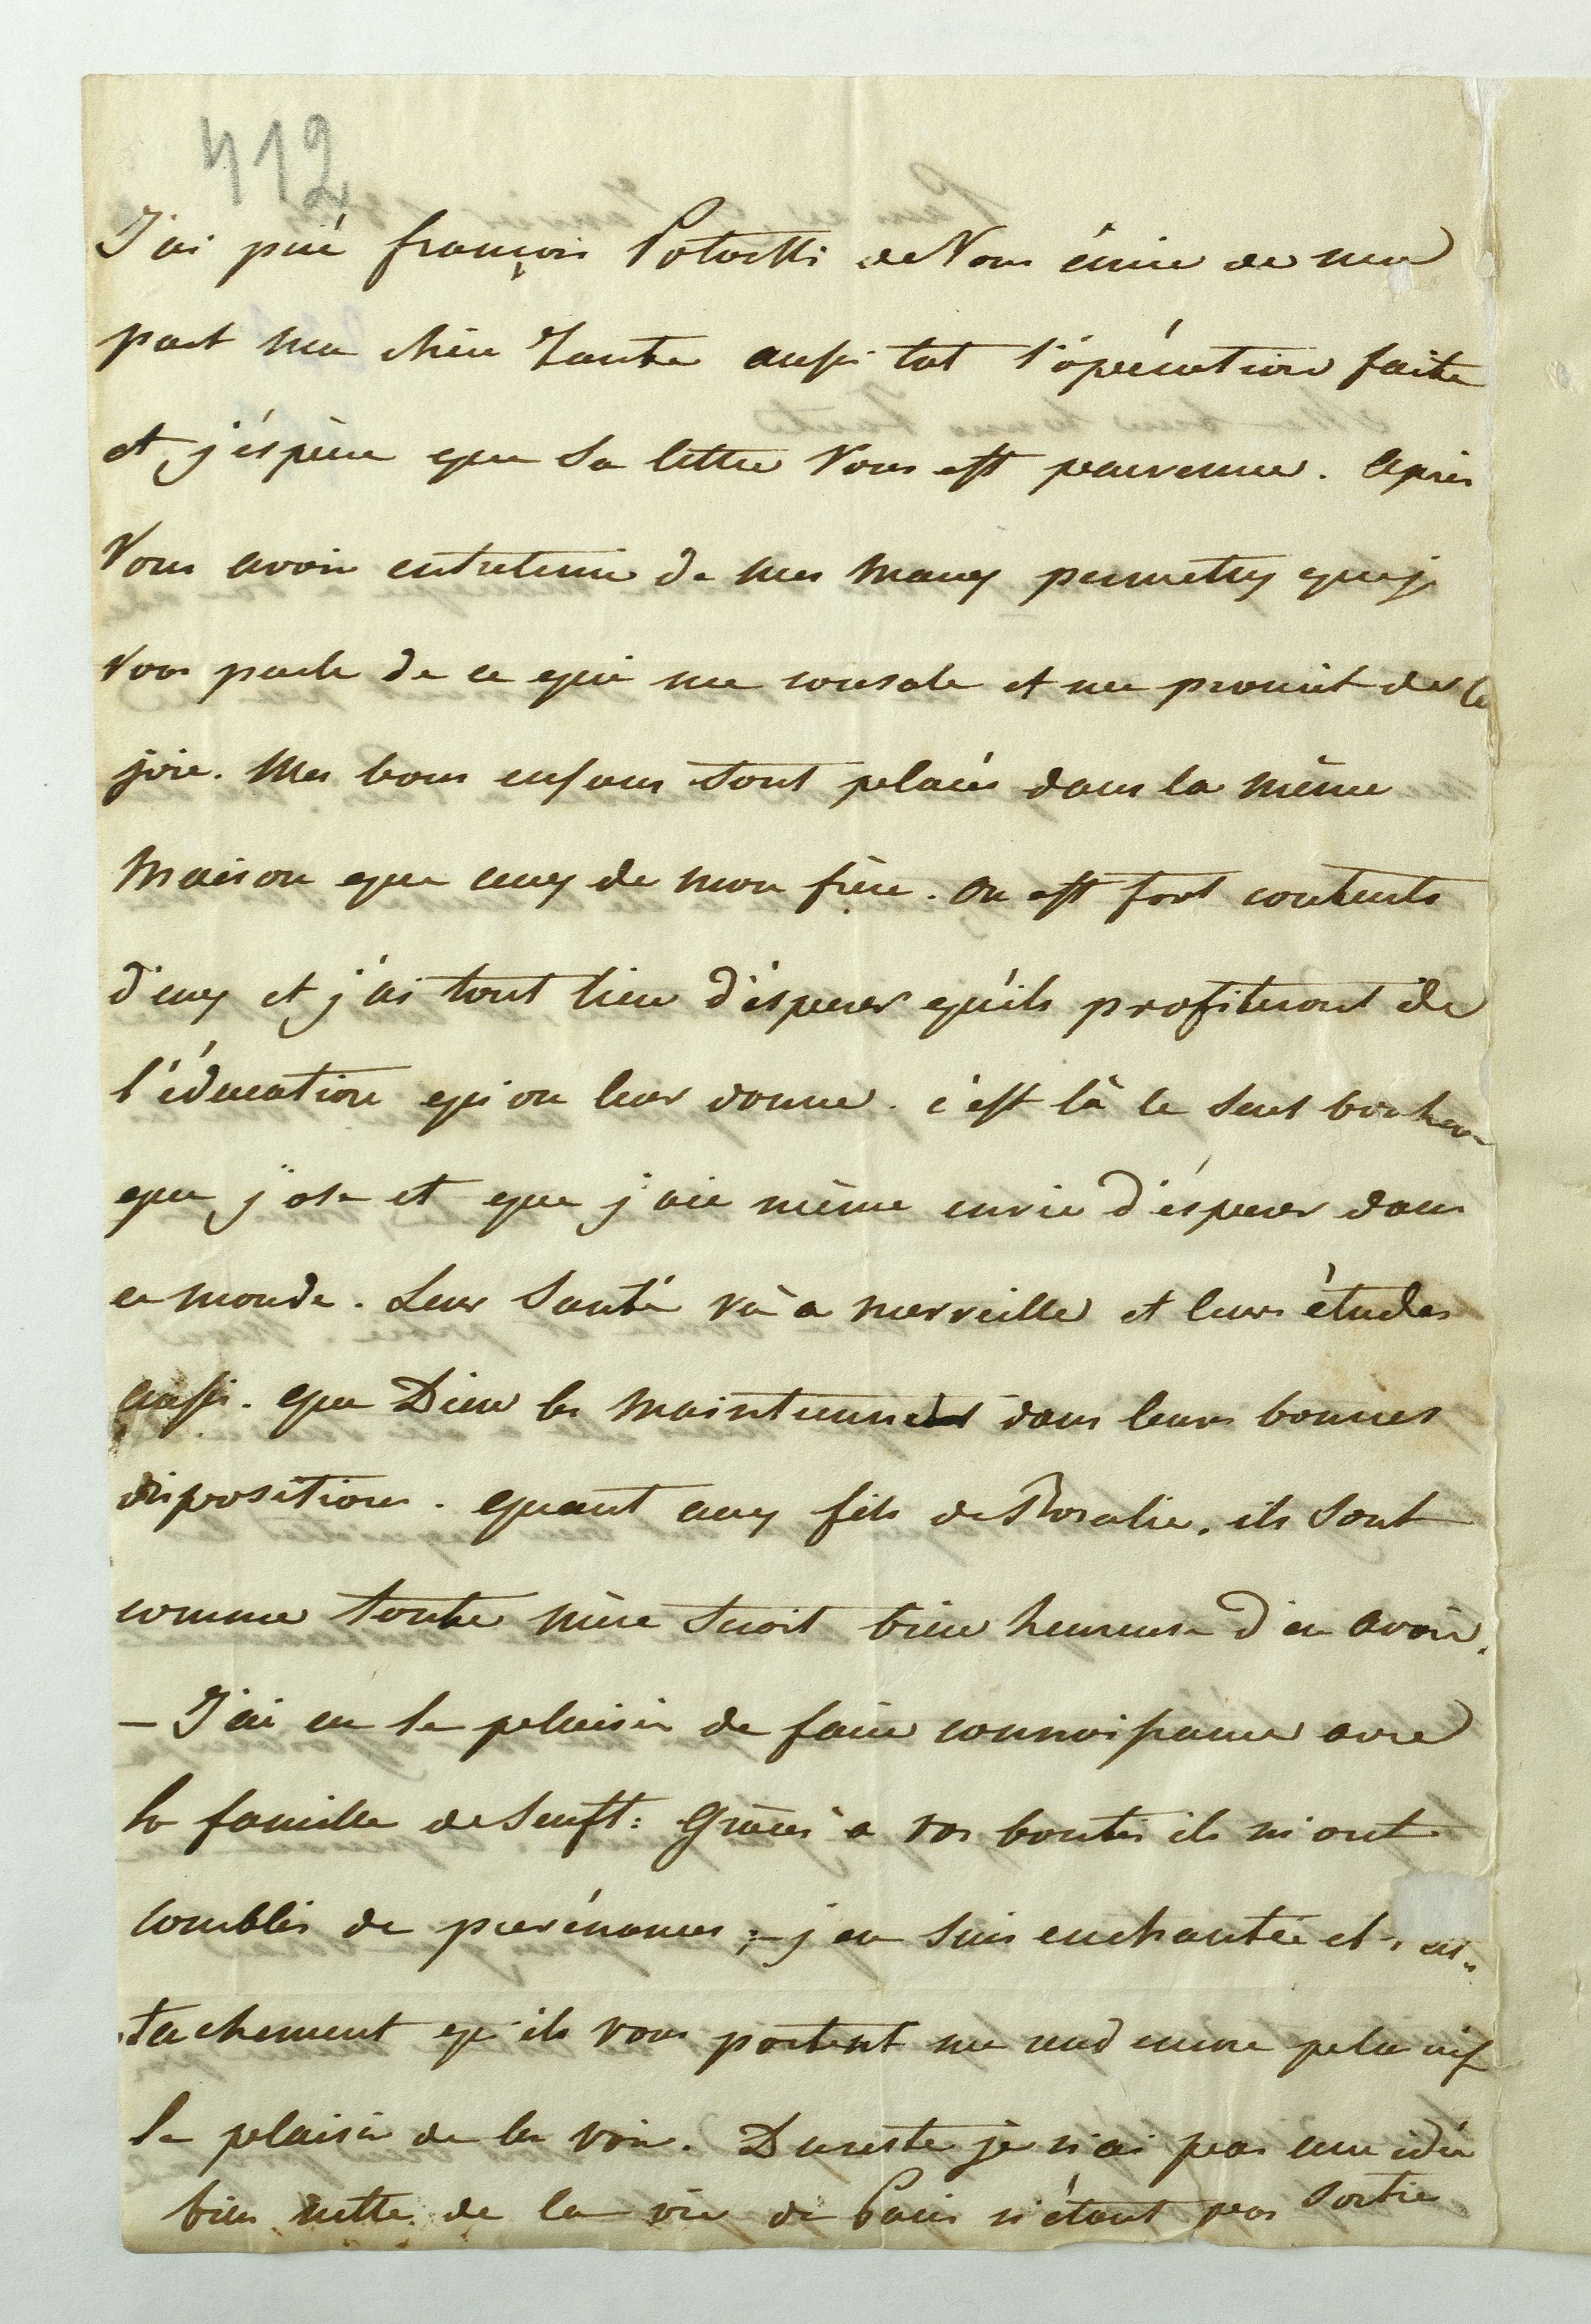 412
J'ai prié françois Potocki de Vous écrire de ma
part ma chère Tante aussi tot l'opération faite
et j'éspère que Sa lettre Vous est parvenue. Après
Vous avoir entretenue de mes maux permettez que je
Vous parle de ce qui me console et me promet de la
joie. Mes bons enfans sont placés dans la même
Maison que ceux de mon frère. On est fort contents
d'eux et j'ai tout lieu d'ésperer qu'ils profiteront de
l'éducation qu'on leur donne. c'est là le seul bonheur
que j'ose et que j'aie même envie d'ésperer dans
ce monde. Leur Santé và a merveille et leurs études
aussi. que Dieu les maintienne dans leurs bonnes
dispositions. quant aux fils de Rosalie, ils sont
comme toute mère seroit bien heureuse d'en avoir.
– J'ai eu le plaisir de faire connoissance avec
la famille de Senft: Grâces à vos bontés ils m'ont
comblés de prevénances; – j'en suis enchantée et l'at„
„tachement qu'ils vous portent me rend encore plus vif
le plaisir de les voir. Du reste je n'ai pas une idée
bien nette de la vie de Paris n'étant pas sortie